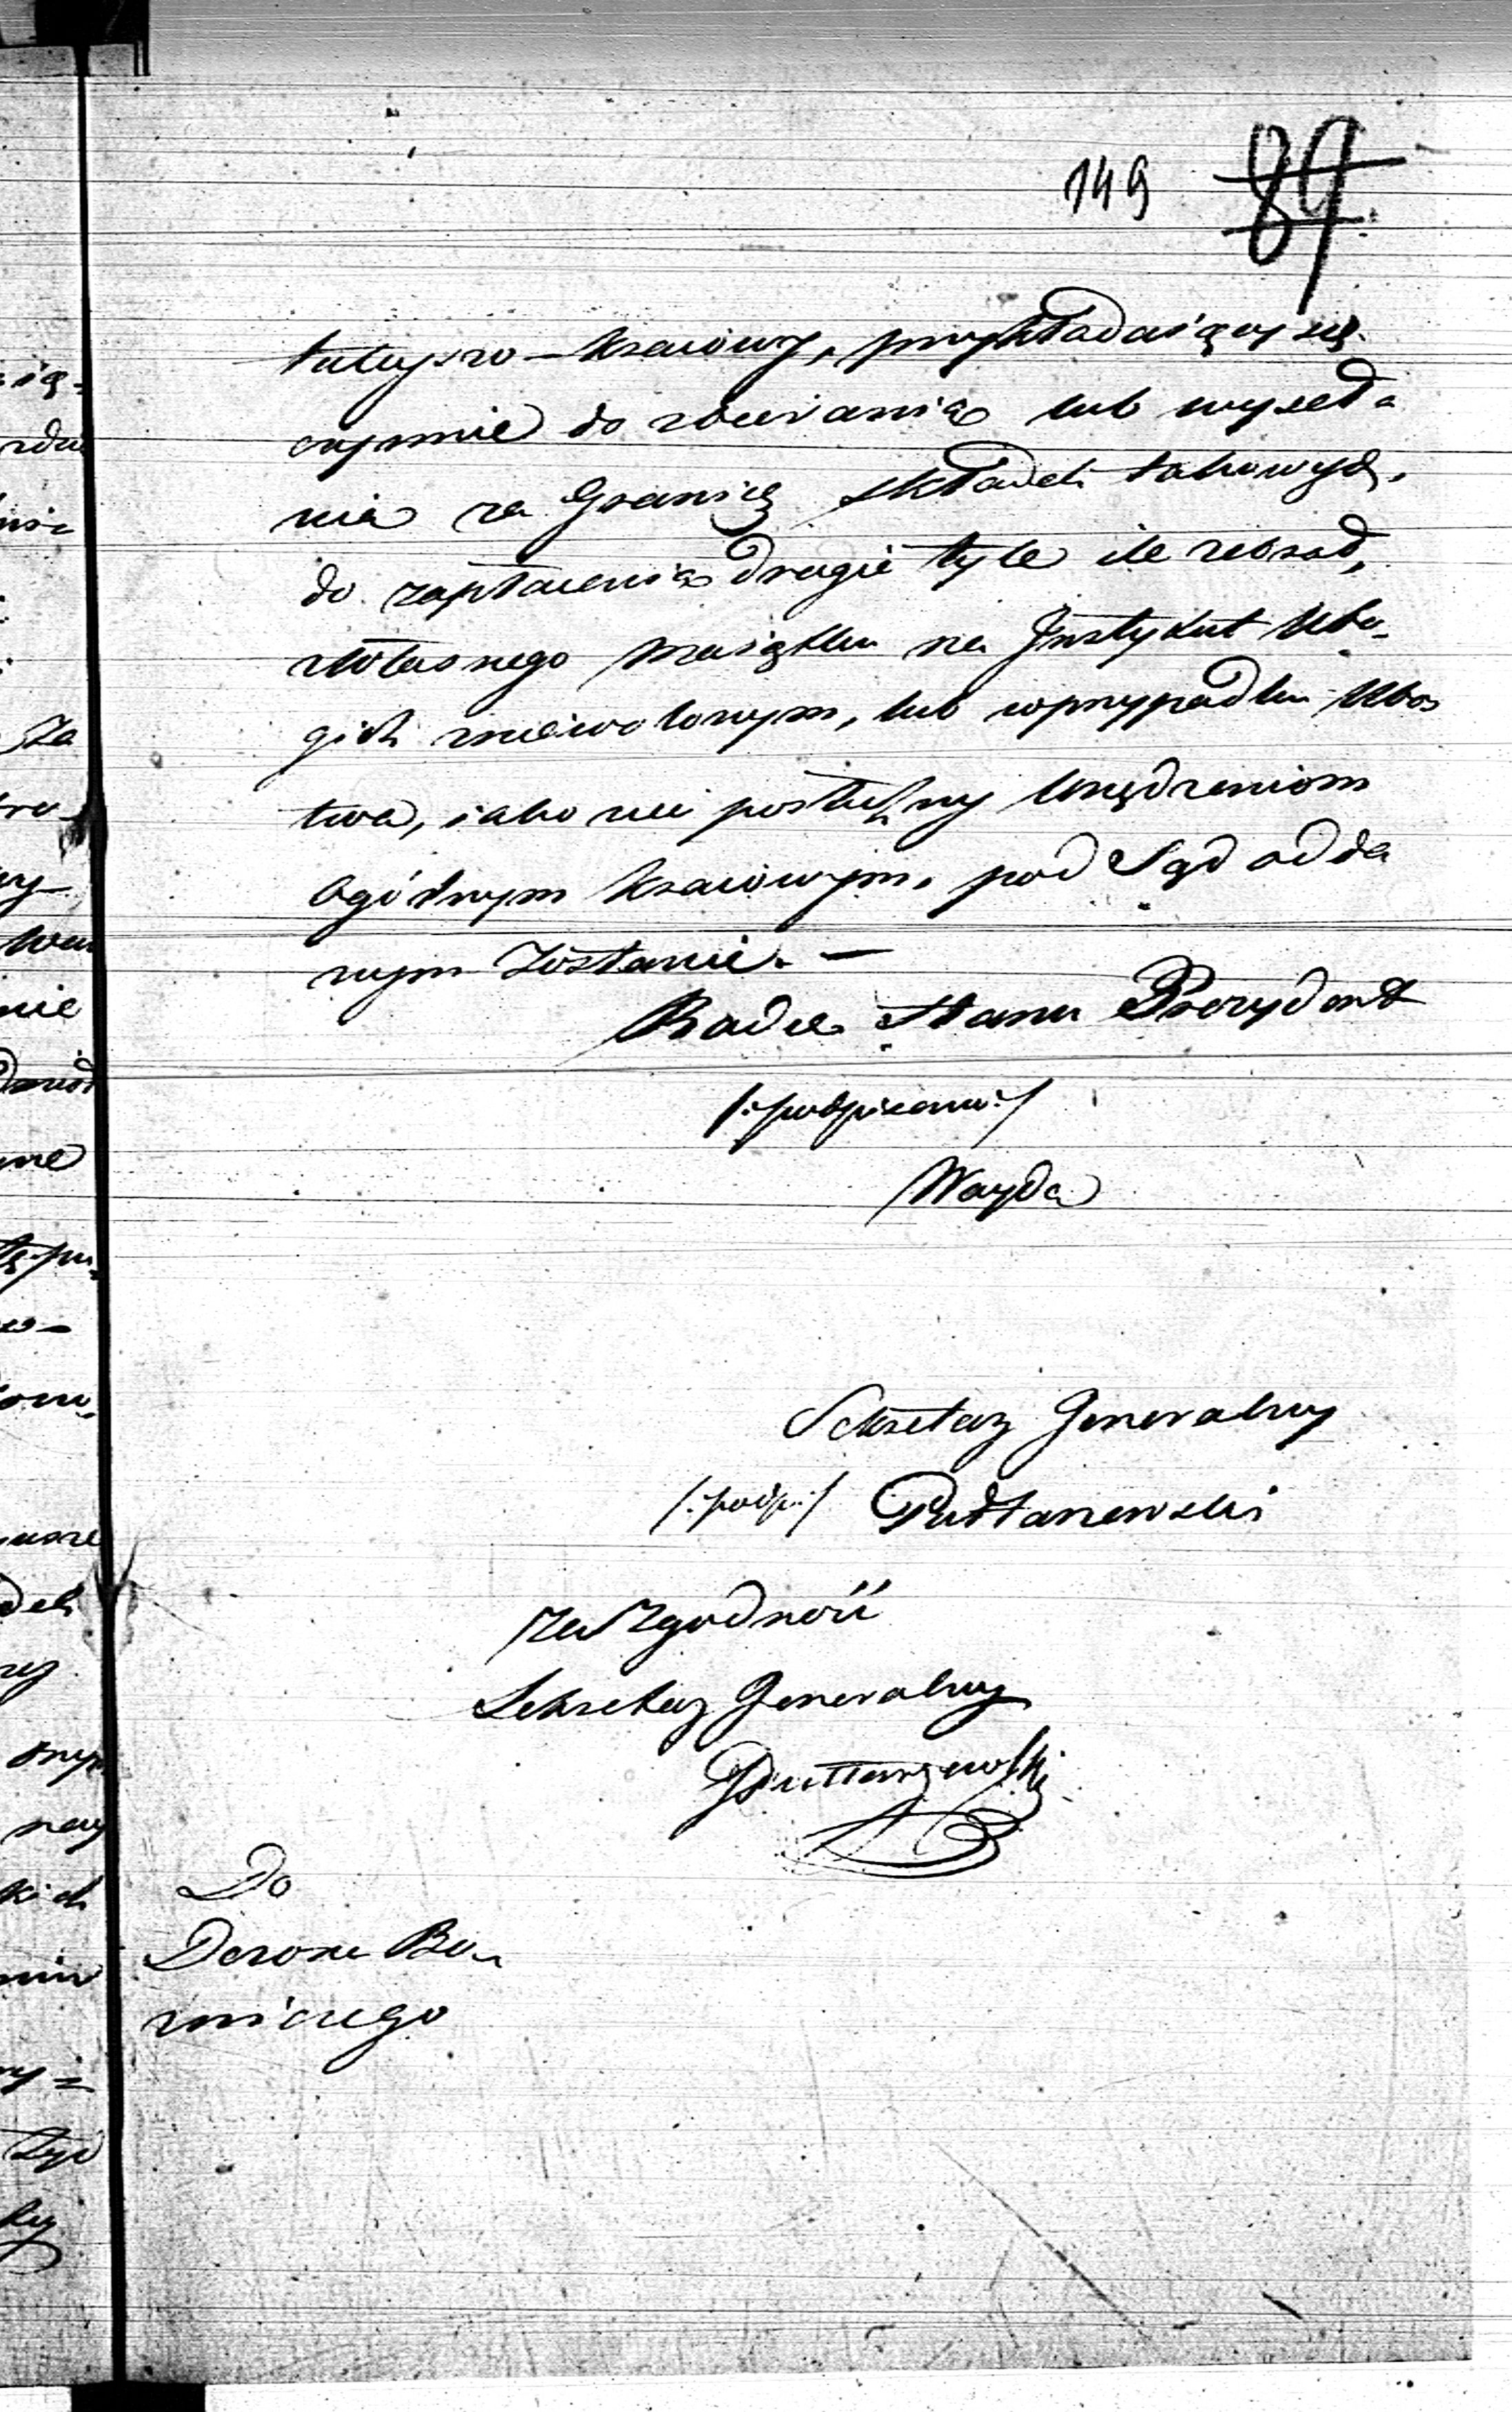 149 89
tuteyszo-kraiowy, przykładaiący się
czynnie do zbierania lub wyseła
nia za Granicę składek takowych,
do zapłacenia drugie tyle ile zebrał,
własnego maiątku na Instytut Ubo-
gich zniewolonym, lub w przypadku Ubos
twa, iako nie posłuszny Urządzeniom
Ogólnym kraiowym, pod Sąd odda
nym zostanie. —
Radca Stanu Prezydent
/:podpisano:/
Wayda
Sekretarz Generalny
/:podp:/ Pułtarzewski
Za Zgodność
Sekretarz Generalny
Pułtarzewski
Do
Dozoru Bo-
zniczego